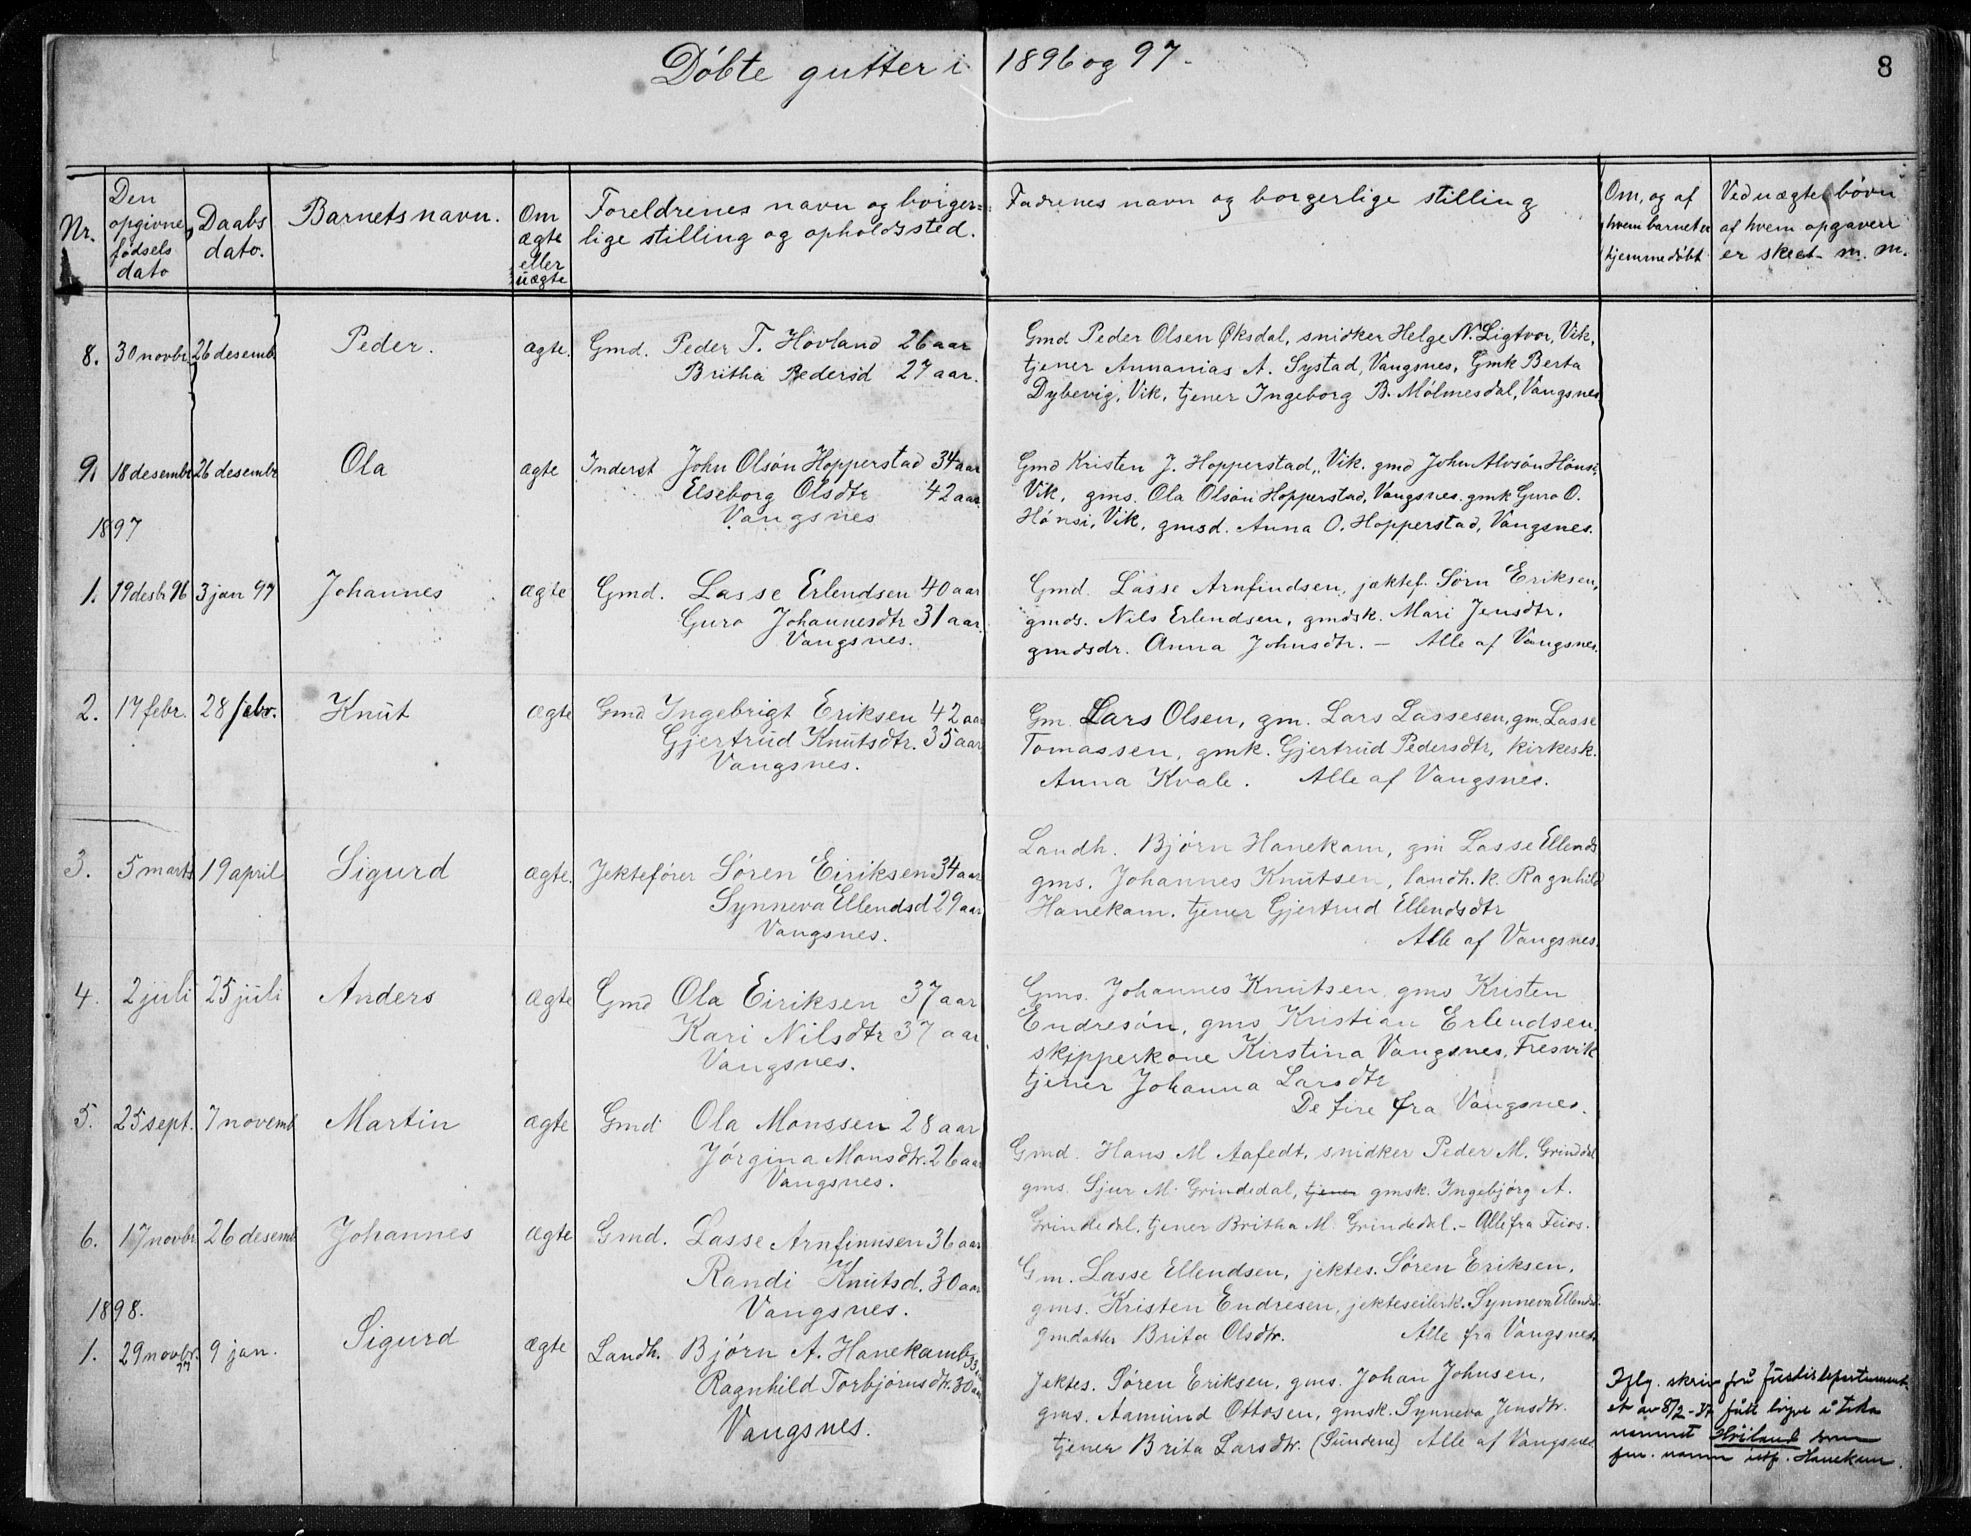 Döbte gutter i 1896 og 97.
8
Nr.
Den opgivne fødsels dato
Daabs dato.
Barnets navn.
Om ægte eller uægte
Foreldrenes navn og borger=
lige stilling og opholdssted.
Fadrenes navn og borgerlige stilling
Om, og af hvem barnet er hjemmedöbt
Ved uægte börn af hvem opgaven er skeet m. m.
8. 30 novbr 26 desemb. Peder. ægte. Gmd. Peder T. Hovland 26 aar
Britha Pedersd 27 aar.
Gmd Peder Olsen Øksdal, snidker Helge N. Ligtvor, Vik,
tjener Annanias A. Systad, Vangsnes, Gmk Berta
Dybevig, Vik, tjener Ingeborg B. Mölmesdal, Vangsnes
9. 18 desembr 26 desembr Ola ægte Inderst John Olsön Hopperstad 34 aar
Elseborg Olsdtr 42 aar.
Vangsnes
Gmd Kristen J. Hopperstad, Vik. gmd John Alvsön Hönsi,
Vik, gms. Ola Olsön Hopperstad, Vangsnes. gmk Guro O.
Hönsi, Vik, gmsd. Anna O. Hopperstad, Vangsnes.
1897
1. 19 desbr 96 3 jan 97 Johannes ægte Gmd. Lasse Erlendsen 40 aar
Guro Johannesdtr 31 aar.
Vangsnes.
Gmd. Lasse Arnfindsen, jæktef. Sörn Eriksen,
gmds. Nils Erlendsen, gmdsk. Mari Jensdtr.
gmdsdr. Anna Johnsdtr. - Alle af Vangsnes.
2. 17 febr. 28 febr. Knut ægte Gmd Ingebrigt Eriksen 42 aar
Gjertrud Knutsdtr. 35 aar
Vangsnes.
Gm. Lars Olsen, gm. Lars Lassesen, gm. Lasse
Tomassen, gmk. Gjertrud Pedersdtr, kirkesk.
Anna Kvale. Alle af Vangsnes.
3. 5 marts 19 april Sigurd ægte. Jektefører Søren Eiriksen 34 aar
Synneva Ellendsd 29 aar
Vangsnes.
Landh. Bjørn Hanekam, gm Lasse Ellends
gms. Johannes Knutsen, landh. k. Ragnhild
Hanekam. tjener Gjertrud Ellendsdtr
Alle af Vangsnes.
4. 2 juli 25 juli Anders ægte Gmd Ola Eiriksen 37 aar
Kari Nilsdtr 37 aar.
Vangsnes.
Gms. Johannes Knutsen, gms Kristen
Endresön, gms Kristian Erlendsen,
skipperkone Kirstina Vangsnes, Fresvik
tjener Johanna Larsdtr
De fire fra Vangsnes.
5. 25 sept. 7 novemb Martin ægte Gmd Ola Monssen 28 aar
Jörgina Monsdtr. 26 aar
Vangsnes.
Gmd. Hans M Aafedt, snidker Peder M. Grinddal
gms. Sjur M. Grindedal, tjener gmsk. Ingebjörg A.
Grindedal, tjener Britha M. Grindedal. - Alle fra Feios.
6. 17 novbr 26 desemb Johannes ægte Gmd. Lasse Arnfinnsen 36 aar
Randi Knutsd. 30 aar
Vangsnes.
Gm. Lasse Ellendsen, jektes. Søren Eriksen,
gms. Kristen Endresen, jekteseilerk. Synneva Ellendsd.
gmdatter Brita Olsdtr. Alle fra Vangsnes.
1898.
1. 29 novbr. 97 9 jan. Sigurd ægte Landh. Bjørn A. Hanekamb 33
Ragnhild Torbjørnsdtr. 30 aar
Vangsnes.
Jektes. Søren Eriksen, gms. Johan Johnsen,
gms. Aamund Ottosen, gmsk. Synneva Jensdtr.
tjener Brita Larsdtr. (Sundene) Alle af Vangsnes
Iflg. skriv frå justisdepartement-
et av 8/2 - fått løyve i taka
namnet Höiland som
fm. namn istf. Hanekam.